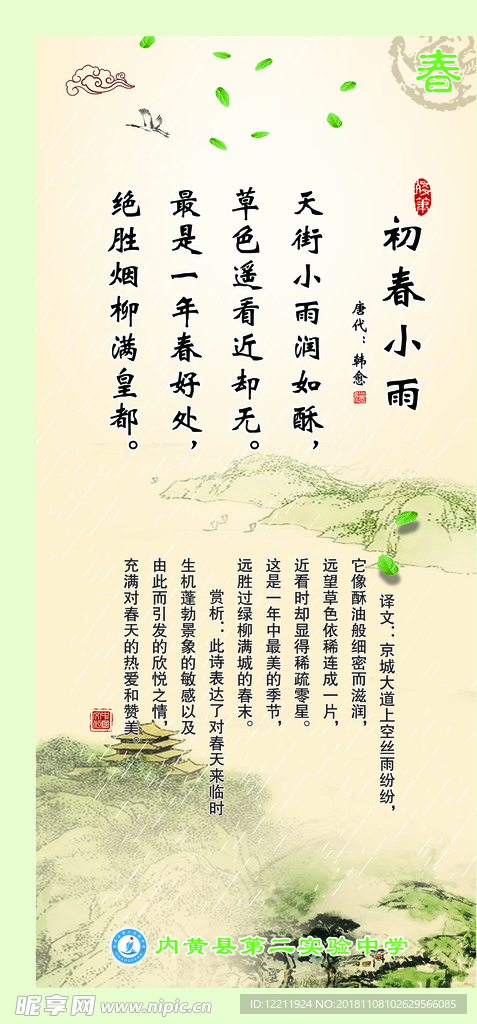 春
初春小雨
唐代：韩愈
天街小雨润如酥，
草色遥看近却无。
最是一年春好处，
绝胜烟柳满皇都。
译文：京城大道上空丝雨纷纷，
它像酥油般细密而滋润，
远望草色依稀连成一片，
近看时却显得稀疏零星。
这是一年中最美的季节，
远胜过绿柳满城的春末。
赏析：此诗表达了对春天来临时
生机蓬勃景象的敏感以及
由此而引发的欣悦之情，
充满对春天的热爱和赞美。
内黄县第二实验中学
昵享网 www.nipic.cn
ID:12211924 NO:20181108102629566085